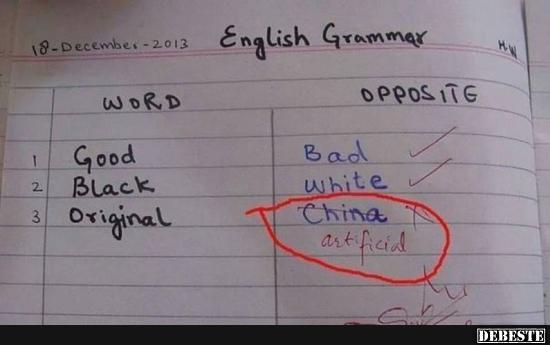 18-December-2013 English Grammar H.W
WORD OPPOSITE
1 Good Bad
2 Black White
3 Original China
artificial
DEBESTE